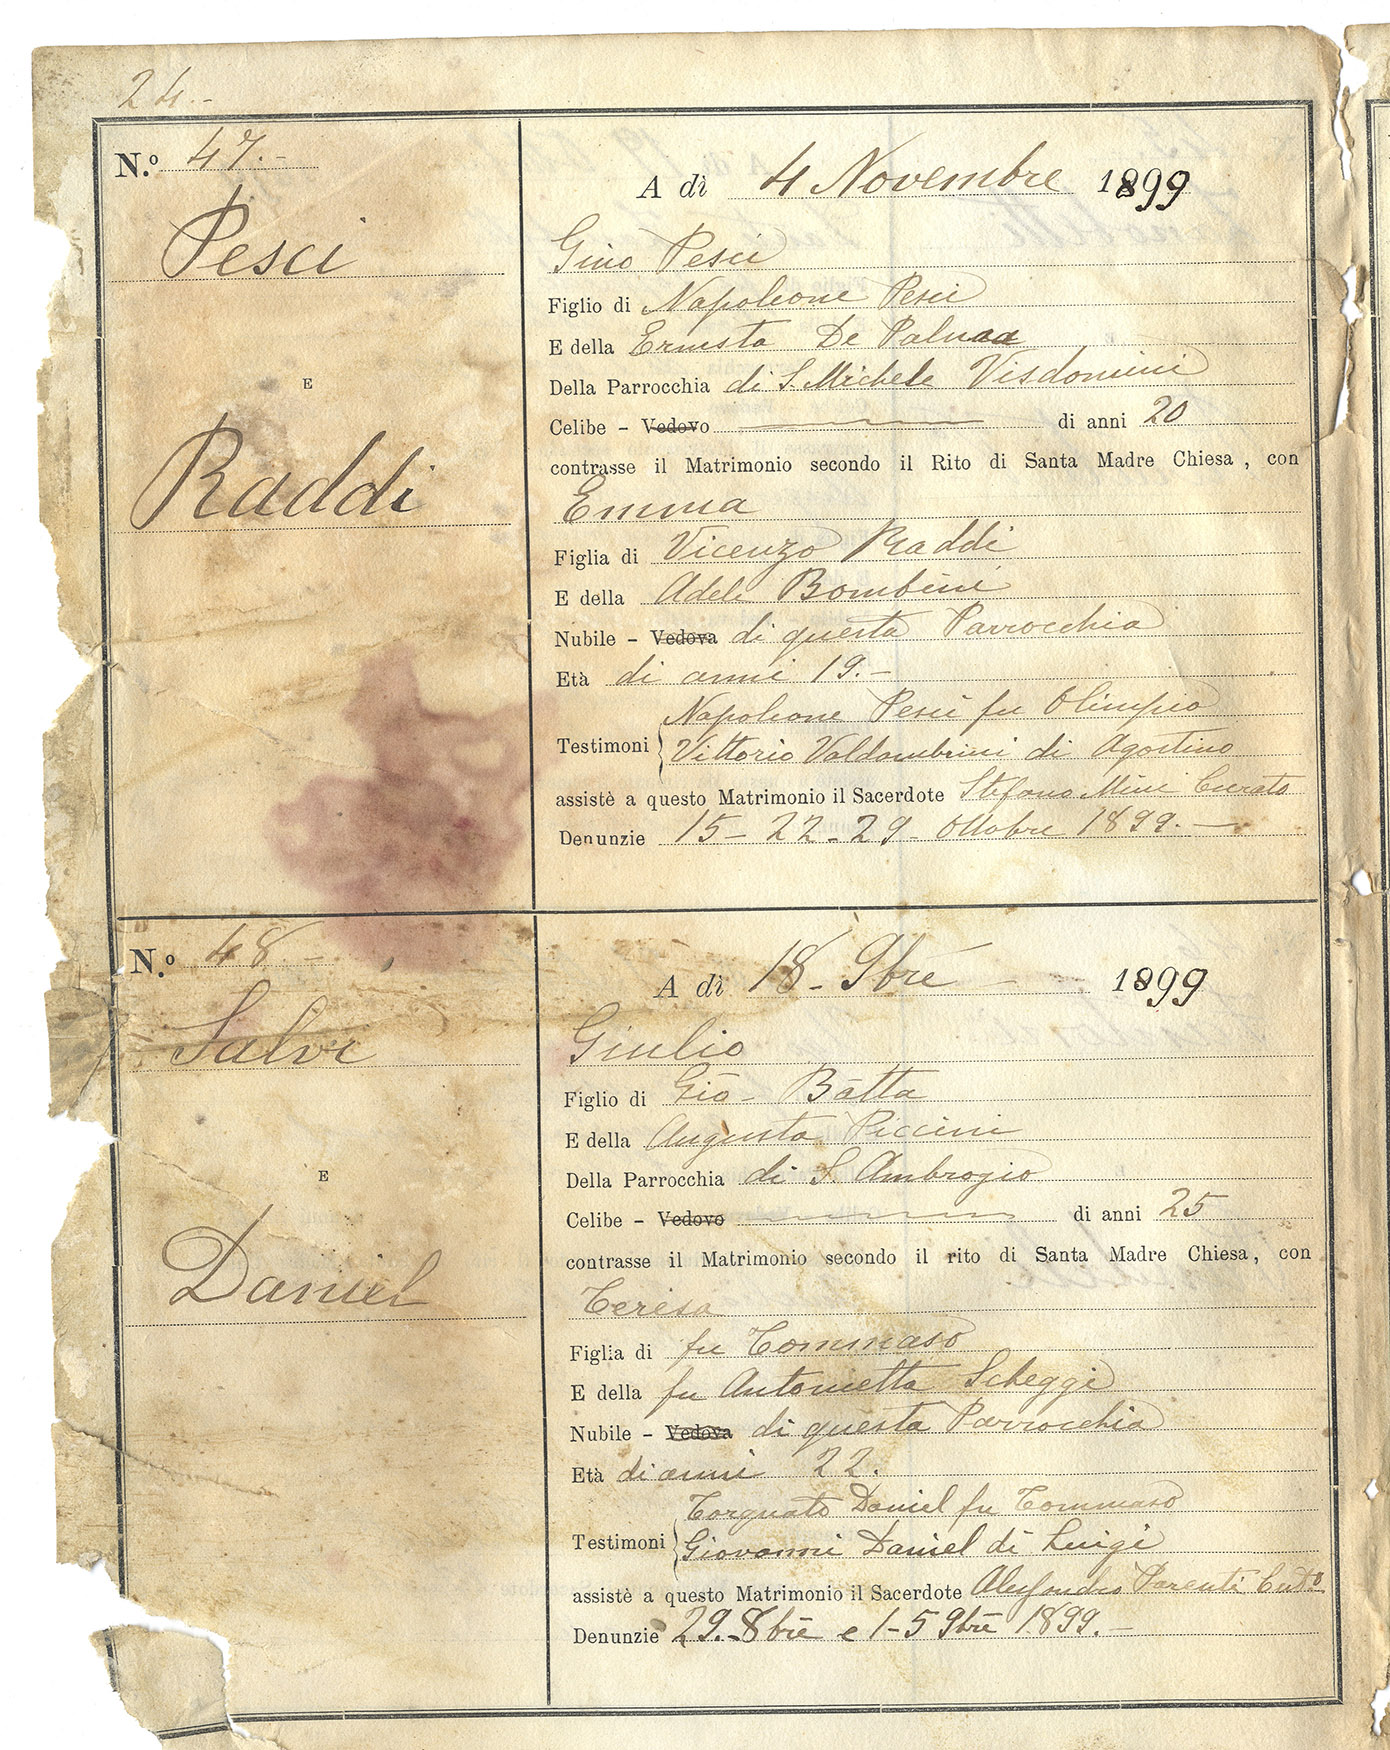 24.-
N.º 47.-
Pesci
E
Raddi
A dì 4 Novembre 1899
Gino Pesci
Figlio di Napoleone Pesci
E della Ernesta De Palma
Della Parrocchia di S. Michele Visdomini
Celibe - Vedovo di anni 20
contrasse il Matrimonio secondo il Rito di Santa Madre Chiesa, con
Emma
Figlia di Vicenzo Raddi
E della Adele Bombini
Nubile - Vedova di questa Parrocchia
Età di anni 19.-
Napoleone Pesci fu Olimpio
Testimoni
Vittorio Valdambrini di Agostino
assistè a questo Matrimonio il Sacerdote Stefano Mini Curato
Denunzie 15 - 22 - 29 - Ottobre 1899.-
N.º 48.-
Salvi
E
Daniel
A dì 18 - 9bre 1899
Giulio
Figlio di Gio- Batta
E della Augusta Piccini
Della Parrocchia di S. Ambrogio
Celibe - Vedovo di anni 25
contrasse il Matrimonio secondo il rito di Santa Madre Chiesa, con
Teresa
Figlia di fu Tommaso
E della fu Antonietta Scheggi
Nubile - Vedova di questa Parrocchia
Età di anni 22.
Torquato Daniel fu Tommaso
Testimoni
Giovanni Daniel di Luigi
assistè a questo Matrimonio il Sacerdote Alessandro Parenti Curto
Denunzie 29.-8bre e 1-5 9bre 1899.-